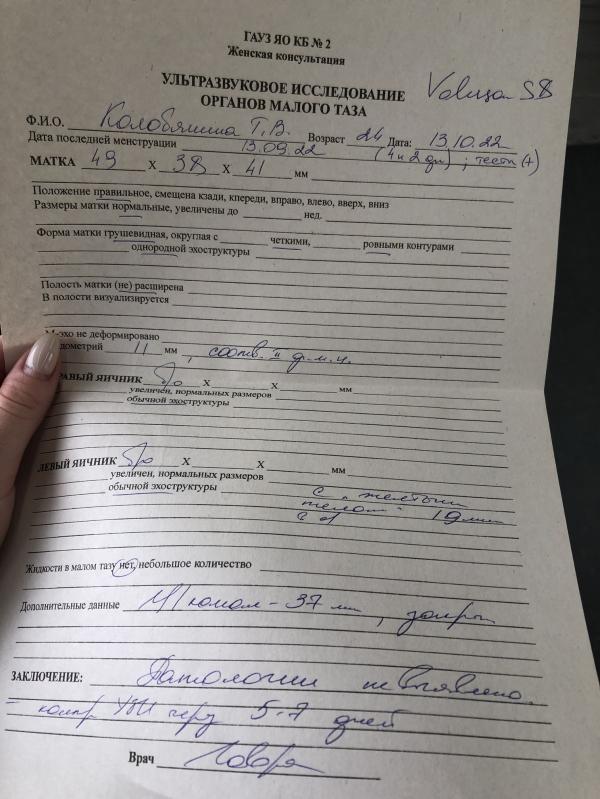 ГАУЗ ЯО КБ № 2
Женская консультация
УЛЬТРАЗВУКОВОЕ ИССЛЕДОВАНИЕ
ОРГАНОВ МАЛОГО ТАЗА
Voluson S8
Ф.И.О. Т. В. Возраст 24 Дата: 13.10.22
Дата последней менструации 13.09.22 (4 н 2 дн) ; тест (+)
МАТКА 49 X 38 X 41 мм
Положение правильное, смещена кзади, кпереди, вправо, влево, вверх, вниз
Размеры матки нормальные, увеличены до нед.
Форма матки грушевидная, округлая с четкими, ровными контурами
однородной эхоструктуры
Полость матки (не) расширена
В полости визуализируется
М-эхо не деформировано
дометрий 11 мм, соотв. II ф.м.ц.
РАВЫЙ ЯИЧНИК б/о X X мм
увеличен, нормальных размеров
обычной эхоструктуры
ЛЕВЫЙ ЯИЧНИК б/о X X мм
увеличен, нормальных размеров
обычной эхоструктуры с "желтым
телом" 19 мм
с d
Жидкости в малом тазу нет, небольшое количество
Дополнительные данные Ц/канал - 37 мм, закрыт
ЗАКЛЮЧЕНИЕ: Патологии не выявлено.
- контр УЗИ через 5-7 дней
Врач